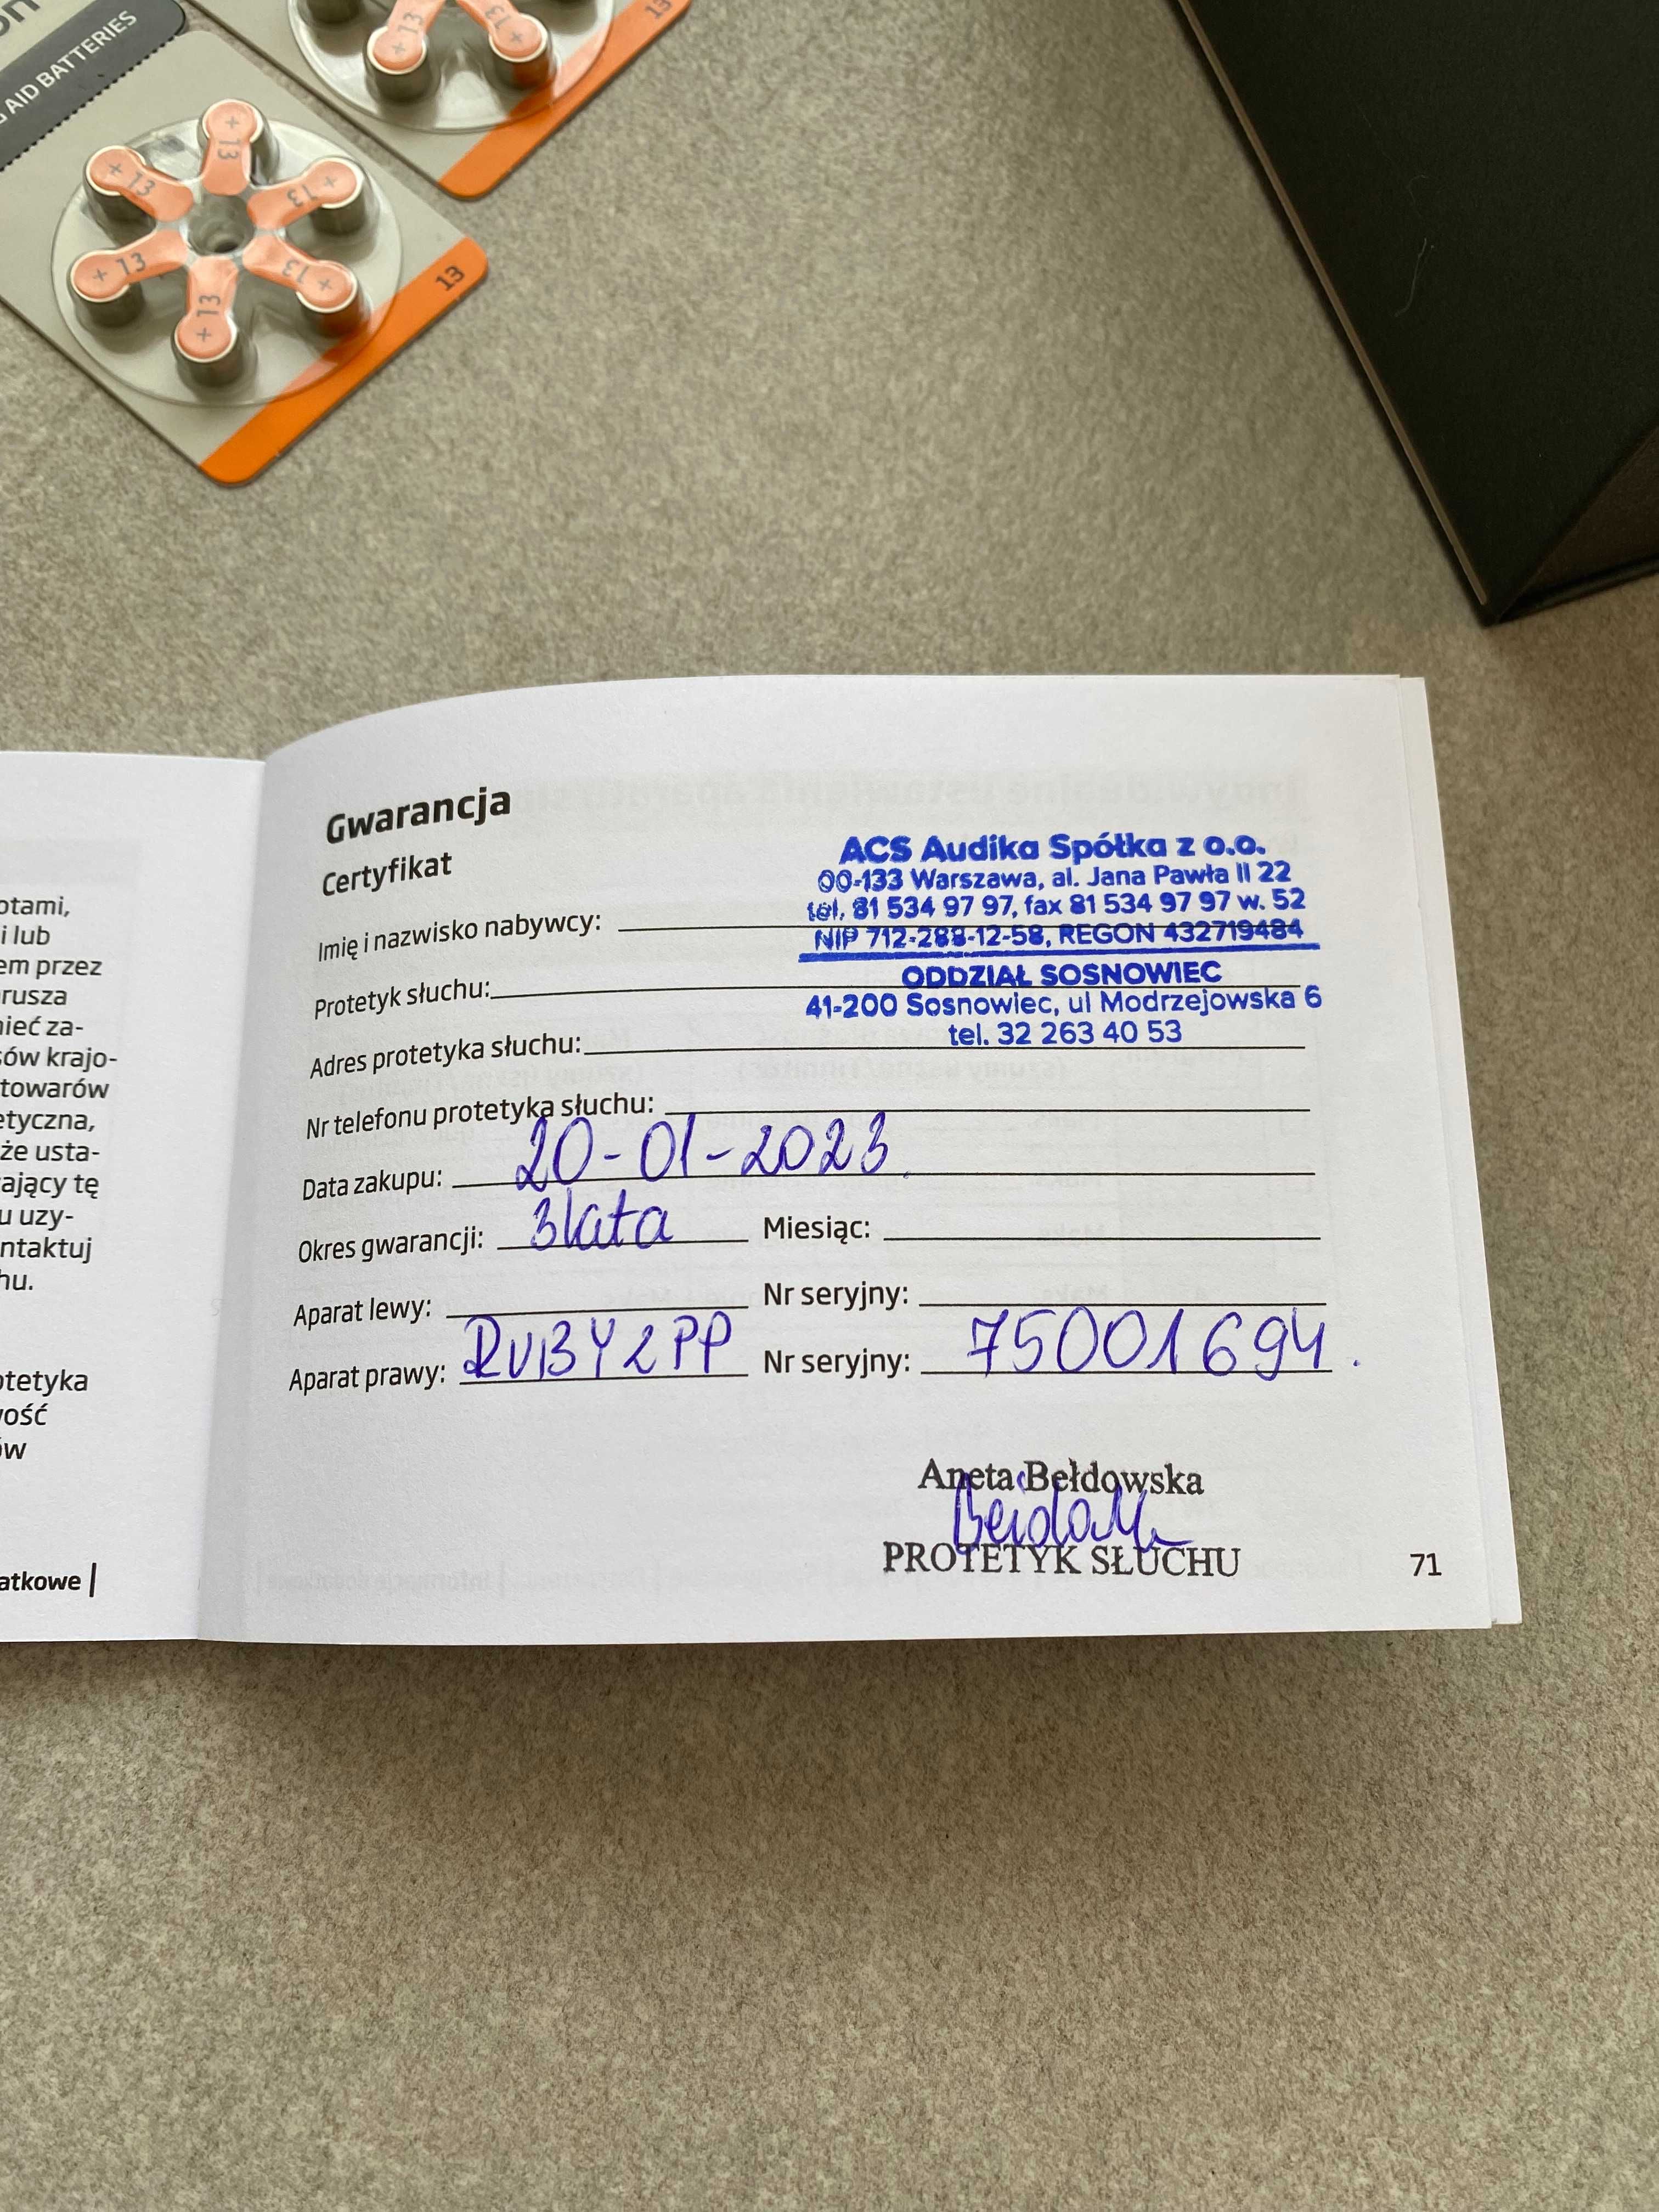 on
AID BATTERIES
+ 13
+ 13
13
+ 13
+ 13
+ 13
+ 13
+ 13
+ 13
13
otami,
i lub
em przez
rusza
nieć za-
sów krajo-
towarów
etyczna,
że usta-
ający tę
u uzy-
ntaktuj
hu.
otetyka
vość
ów
atkowe |
Gwarancja
Certyfikat
ACS Audika Spółka z o.o.
00-133 Warszawa, al. Jana Pawła II 22
tel. 81 534 97 97, fax 81 534 97 97 w. 52
NIP 712-288-12-58, REGON 432719484
ODDZIAŁ SOSNOWIEC
41-200 Sosnowiec, ul Modrzejowska 6
tel. 32 263 40 53
Imię i nazwisko nabywcy:
Protetyk słuchu:
Adres protetyka słuchu:
Nr telefonu protetyka słuchu:
Data zakupu: 20-01-2023.
Okres gwarancji: 3 lata Miesiąc:
Aparat lewy: Nr seryjny:
Aparat prawy: RUBY2PP Nr seryjny: 75001694.
Aneta Bełdowska
PROTETYK SŁUCHU
71